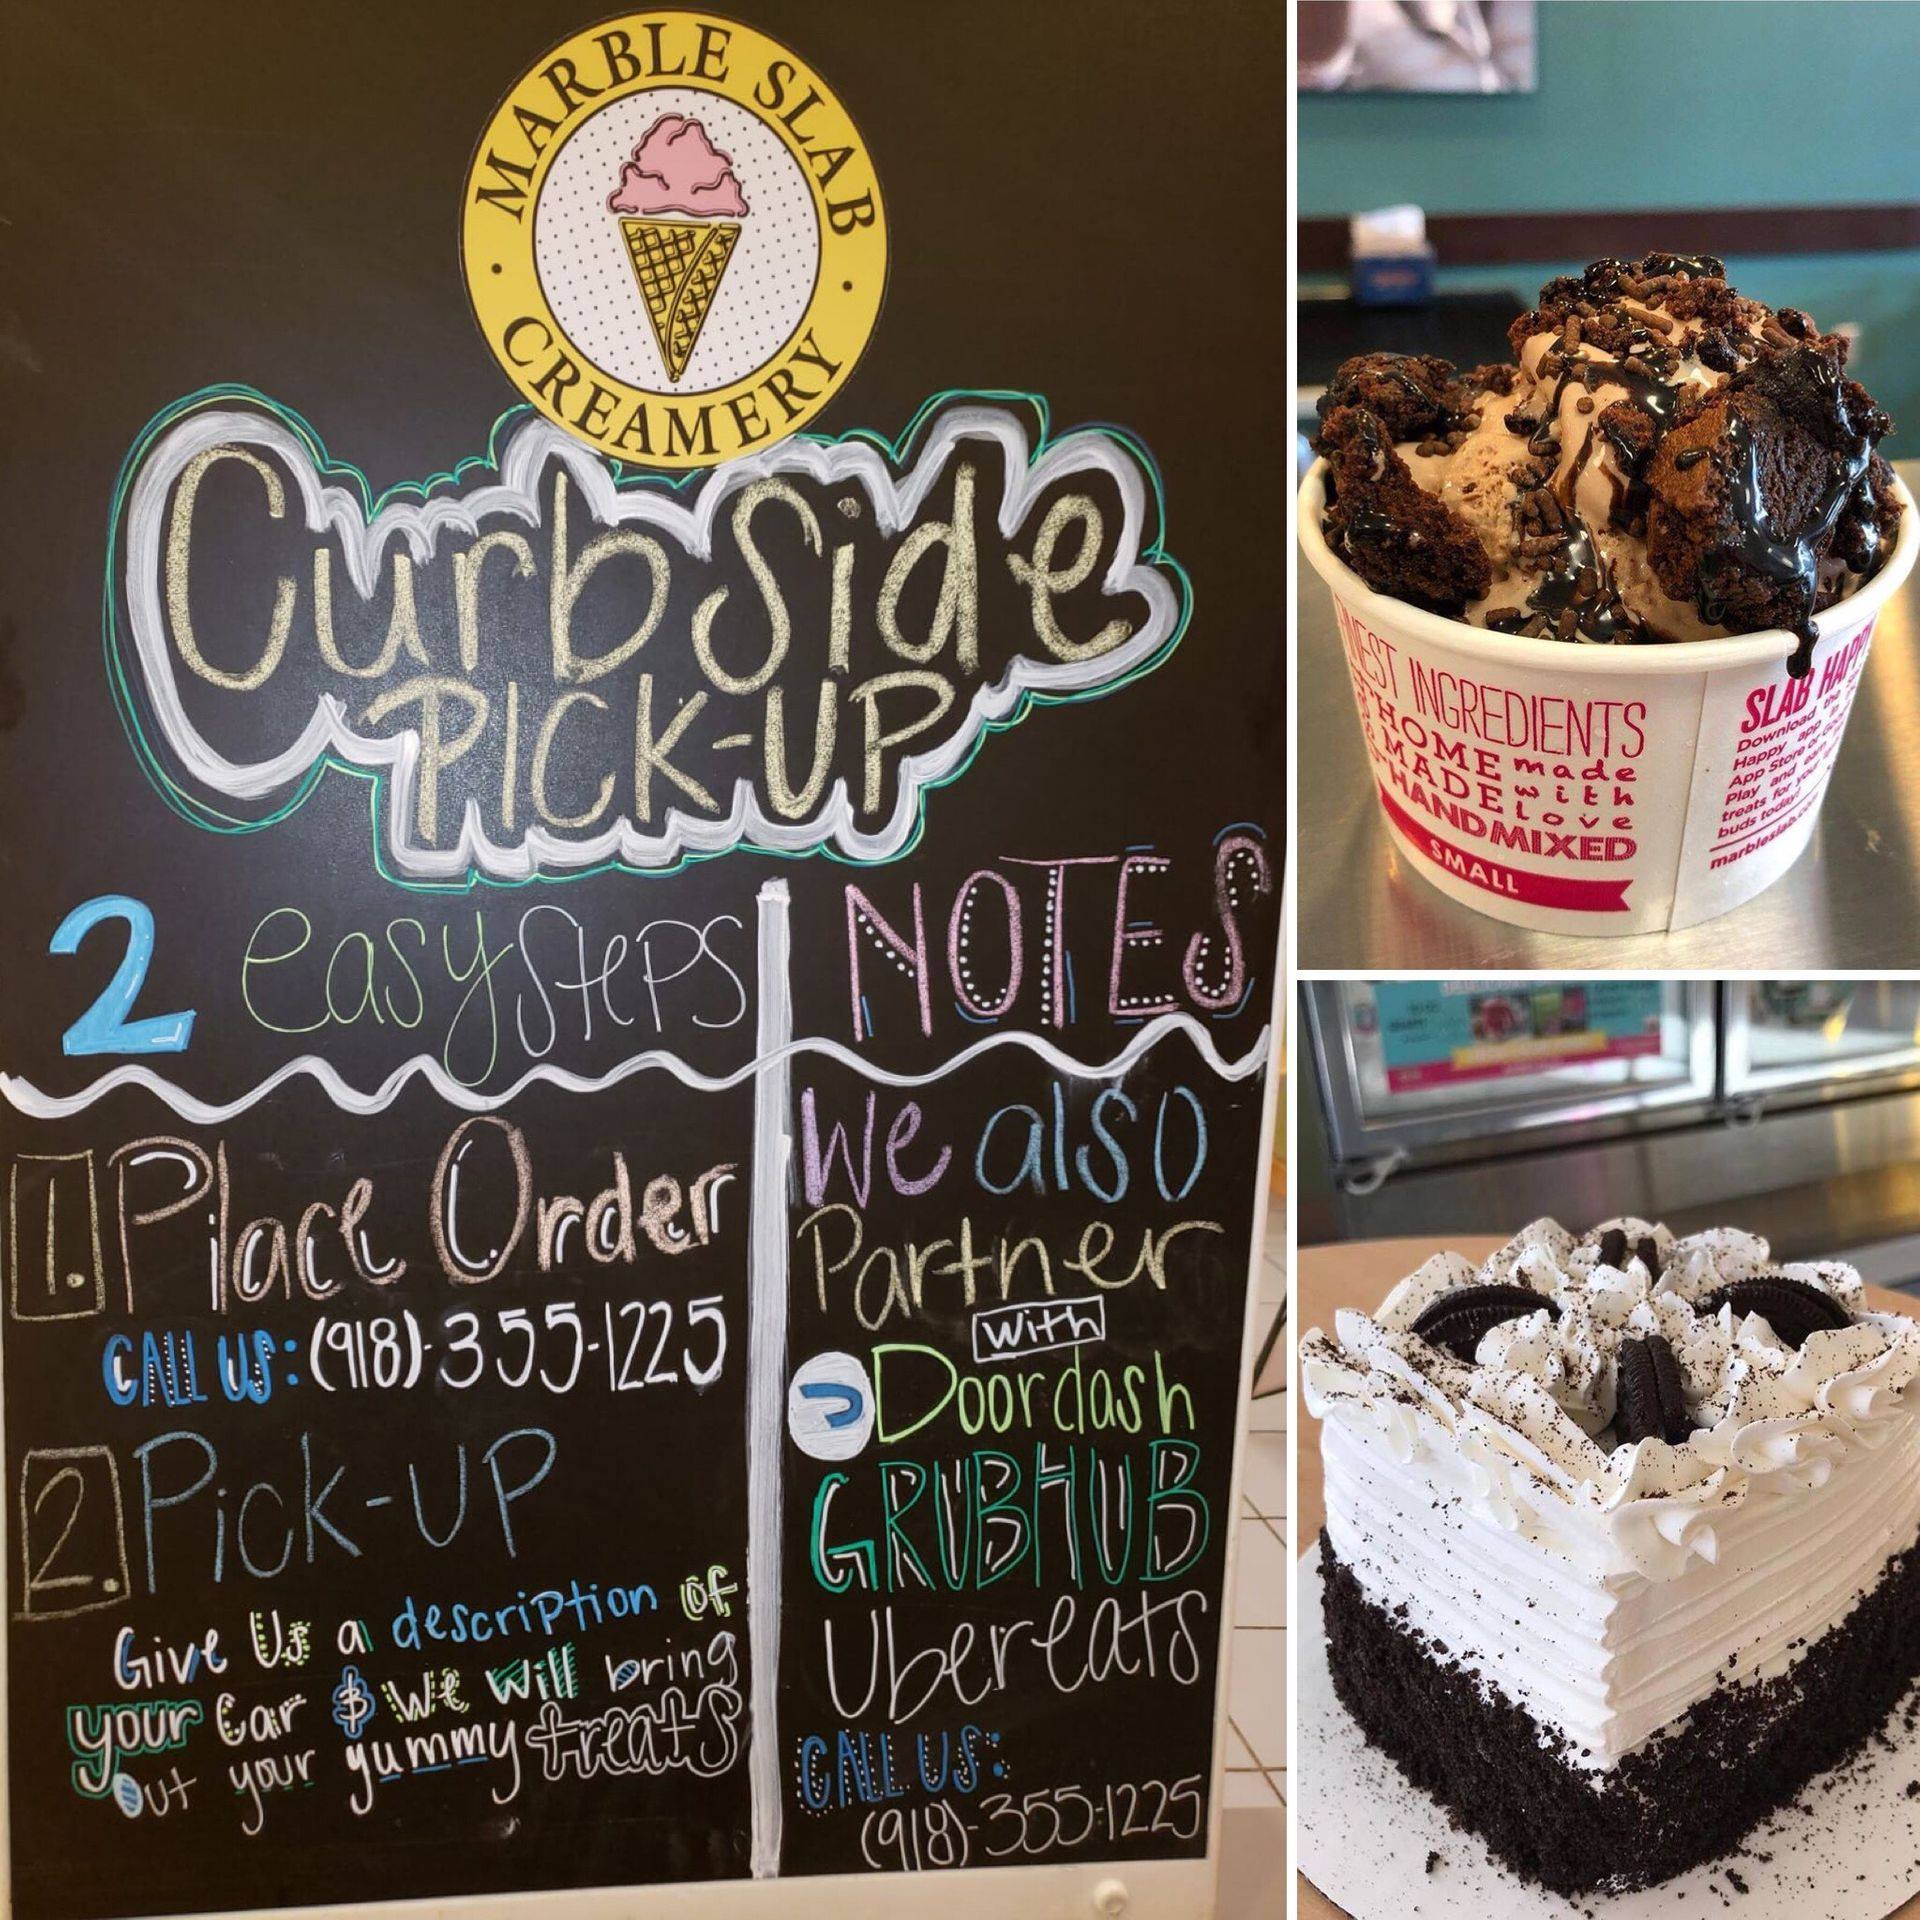 MARBLE SLAB
CREAMERY
Curbside
PICK-UP
2 easy StePS
1. Place Order
CALL US: (918)-355-1225
2. Pick-UP
Give Us a description of
your Car & We will bring
Out your yummy treats
NOTES
We also
Partner
With
Doordash
GRUBHUB
Ubereats
CALL US:
(918)-355-1225
INGREDIENTS
HOME made
MADE with
love
HANDMIXED
SMALL
SLAB HAPPY
Download the
Happy app in
App Store or
Play and earn
treats for your
buds today!
marbleslab.com